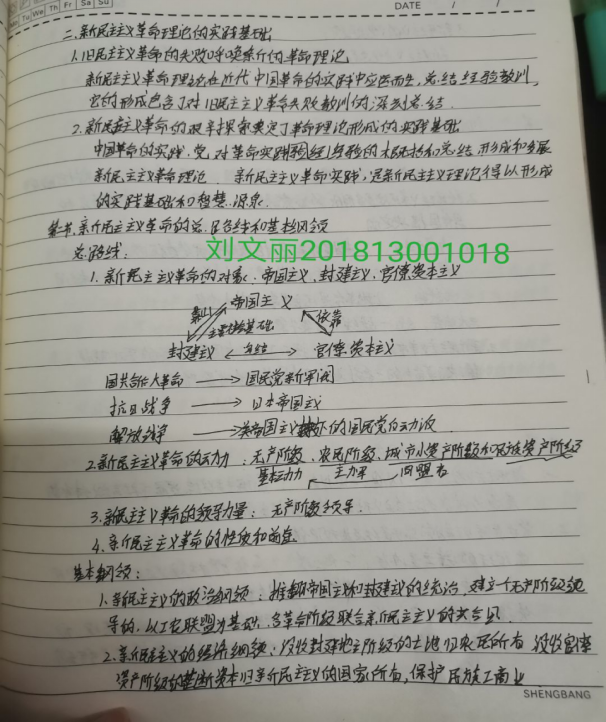 DATE / /
Tu We Th Fr Sa Su
二、新民主主义革命理论的实践基础
1.旧民主主义革命的失败呼唤新的革命理论
新民主主义革命理论在近代中国革命的实践中应运而生,总结经验教训,
它的形成包含了对旧民主主义革命失败教训的深刻总结.
2.新民主主义革命的艰辛探索奠定了革命理论形成的实践基础
中国革命的实践,党对革命实践经验的概括和总结,形成和发展
新民主主义革命理论. 新民主主义革命实践,是新民主主义理论得以形成
的实践基础和智慧源泉.
第二节、新民主主义革命的总路线和基本纲领
刘文丽201813001018
总路线:
1.新民主主义革命的对象:帝国主义、封建主义、官僚资本主义
帝国主义
靠山 主要统治基础 依靠
封建主义 勾结 官僚资本主义
国共合作大革命 → 国民党新军阀
抗日战争 → 日本帝国主义
解放战争 → 美帝国主义扶持的国民党反动派
2.新民主主义革命的动力:无产阶级、农民阶级、城市小资产阶级和民族资产阶级
基本动力 主力军 同盟者
3.新民主主义革命的领导力量:无产阶级领导.
4.新民主主义革命的性质和前途
基本纲领:
1.新民主主义的政治纲领:推翻帝国主义和封建主义的统治,建立一个无产阶级领
导的,以工农联盟为基础,各革命阶级联合新民主主义的共和国.
2.新民主主义的经济纲领:没收封建地主阶级的土地归农民所有 没收官僚
资产阶级的垄断资本归新民主主义的国家所有,保护民族工商业
SHENGBANG